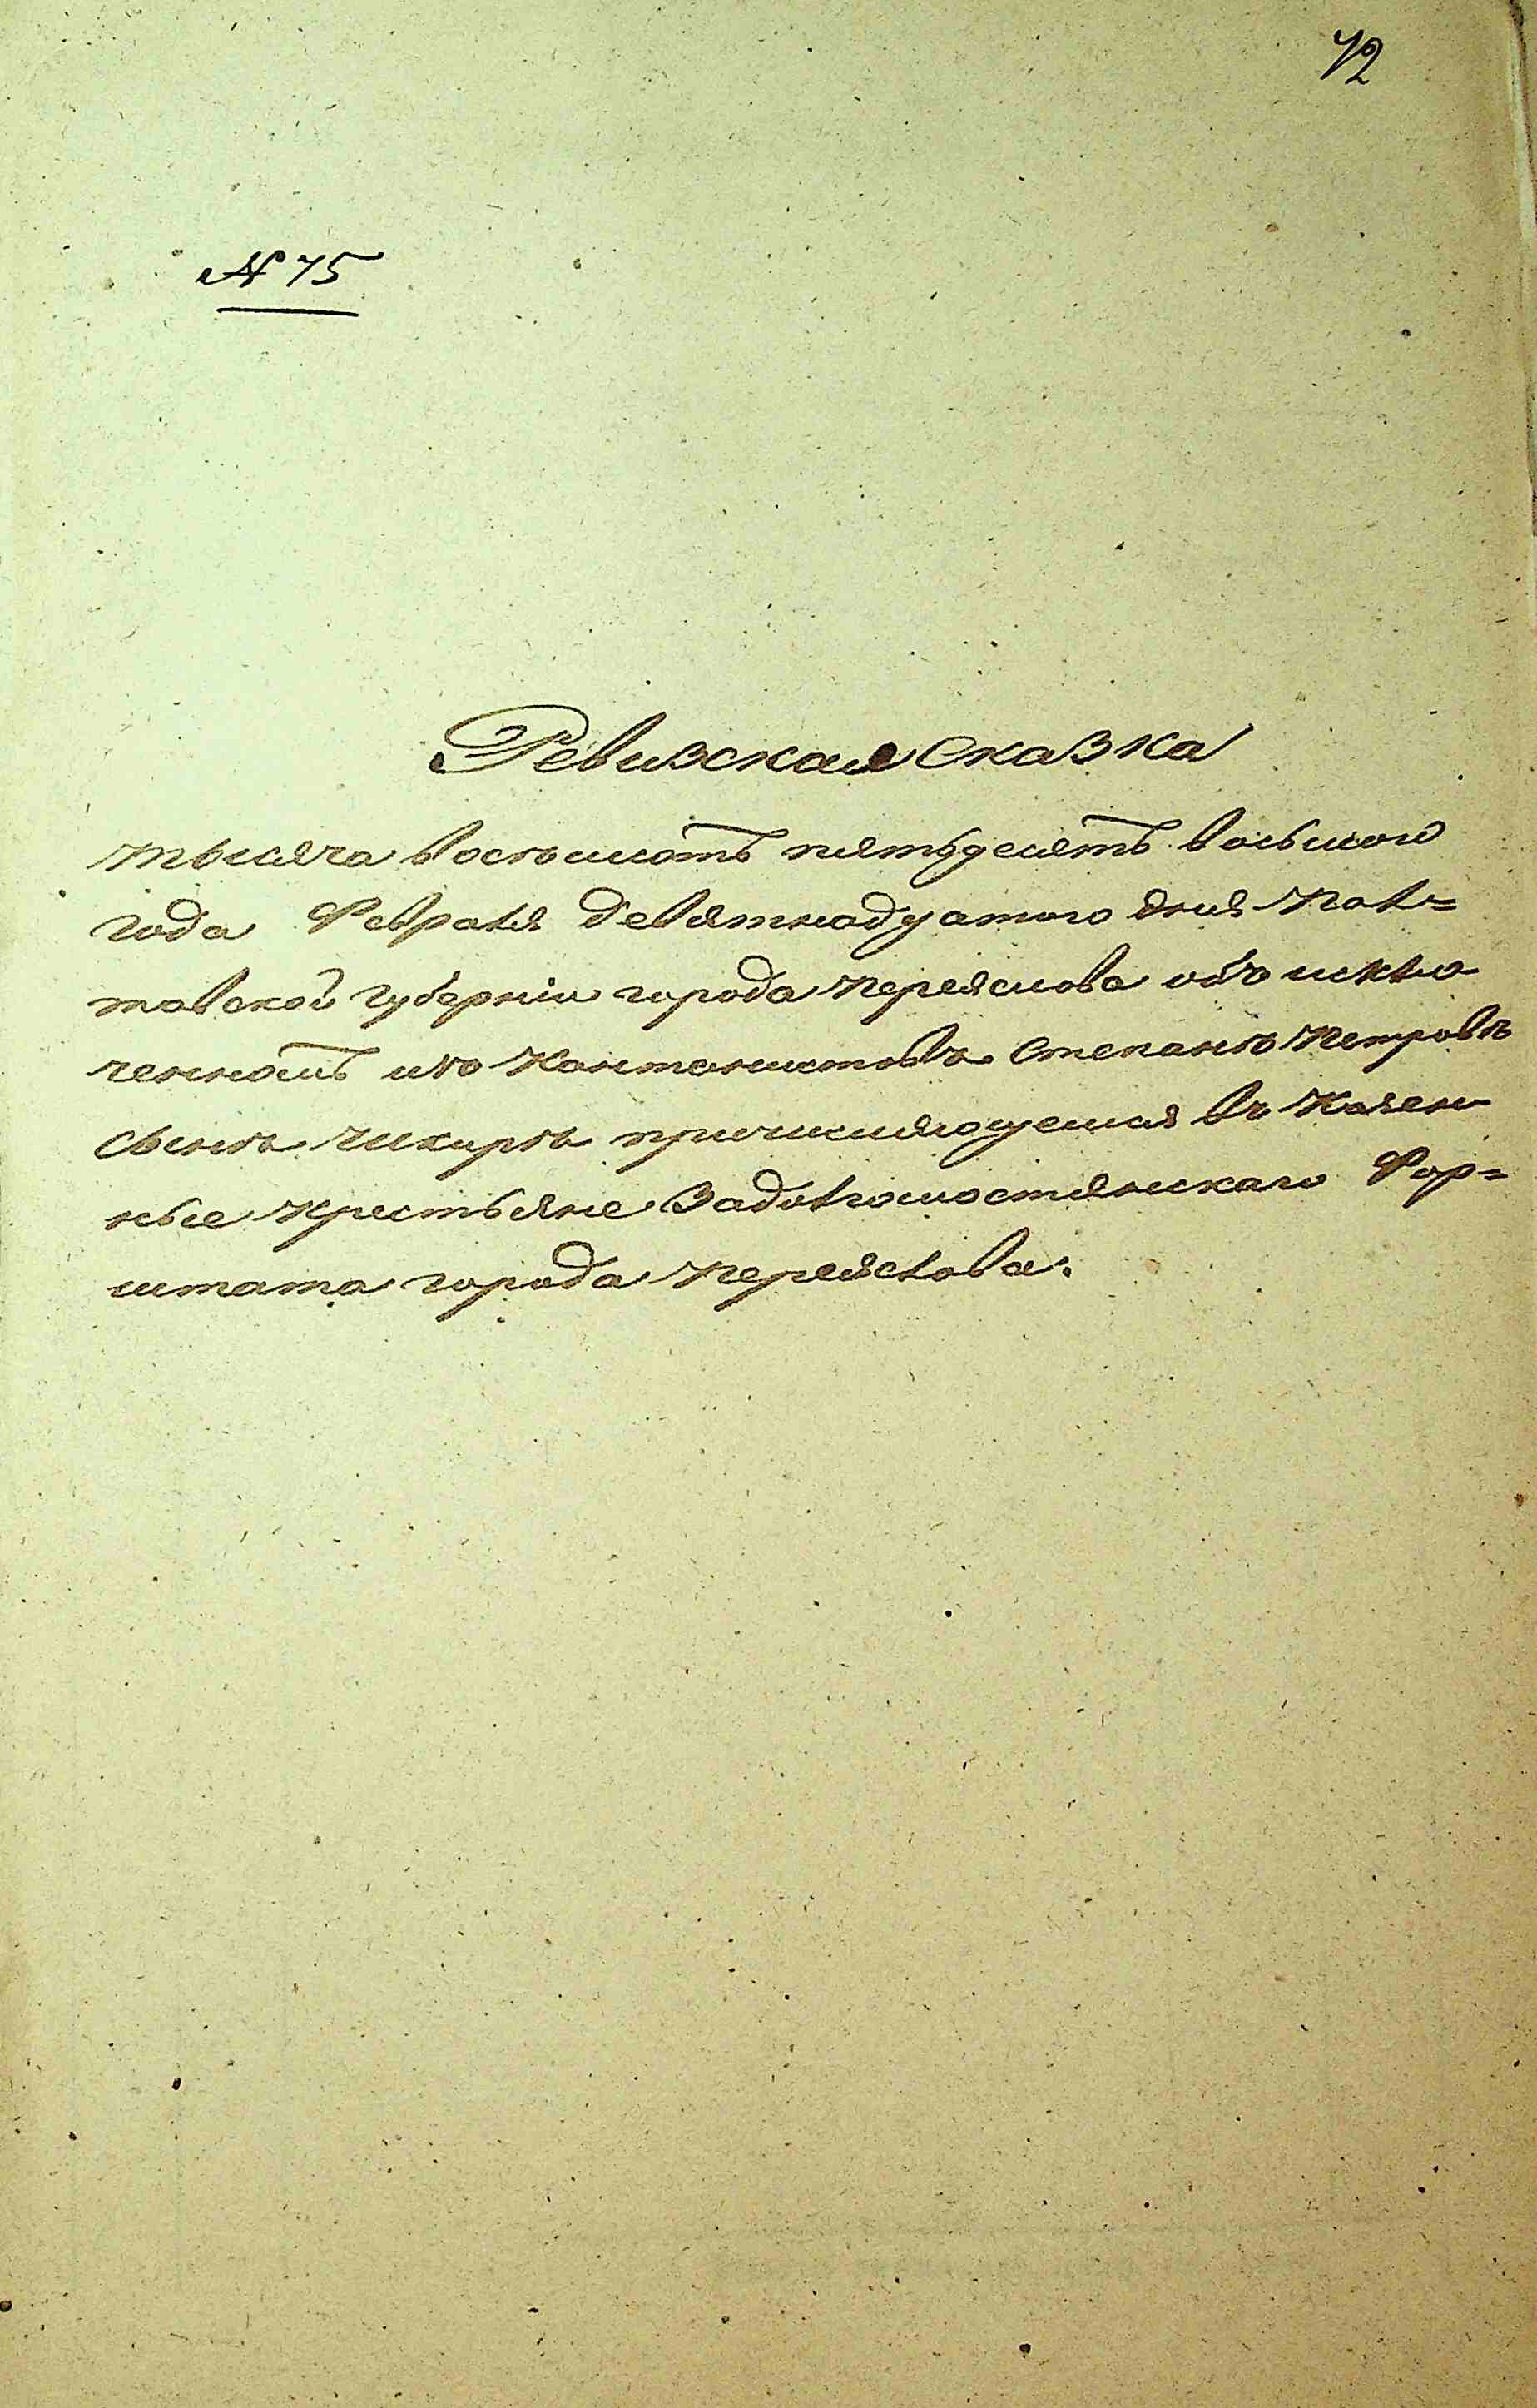 72
№ 75
Ревизская Сказка
тысяча восемьсотъ пятьдесятъ восьмого
года Февраля девятнадцатого дня Пол=
тавской Губернии города Переяслова объ исклю
ченномъ изъ Кантонистовъ Степанѣ Петровѣ
сынѣ причисляющемся въ Казен
ные Крестьяне Задолгомостянскаго Фор=
штата города Переяслова.